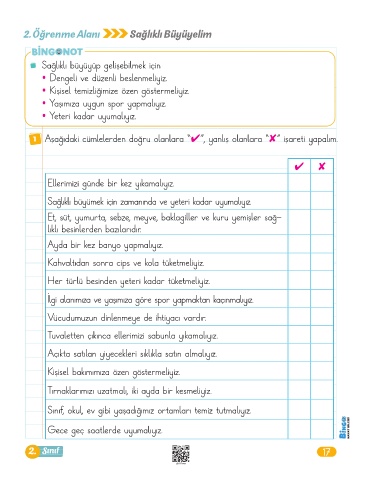 2. Öğrenme Alanı Sağlıklı Büyüyelim
BİNGONOT
Sağlıklı büyüyüp gelişebilmek için
• Dengeli ve düzenli beslenmeliyiz.
• Kişisel temizliğimize özen göstermeliyiz.
• Yaşımıza uygun spor yapmalıyız.
• Yeteri kadar uyumalıyız.
1 Aşağıdaki cümlelerden doğru olanlara "✔", yanlış olanlara "✘" işareti yapalım.
✔ ✘
Ellerimizi günde bir kez yıkamalıyız.
Sağlıklı büyümek için zamanında ve yeteri kadar uyumalıyız.
Et, süt, yumurta, sebze, meyve, baklagiller ve kuru yemişler sağ-
lıklı besinlerden bazılarıdır.
Ayda bir kez banyo yapmalıyız.
Kahvaltıdan sonra cips ve kola tüketmeliyiz.
Her türlü besinden yeteri kadar tüketmeliyiz.
İlgi alanımıza ve yaşımıza göre spor yapmaktan kaçınmalıyız.
Vücudumuzun dinlenmeye de ihtiyacı vardır.
Tuvaletten çıkınca ellerimizi sabunla yıkamalıyız.
Açıkta satılan yiyecekleri sıklıkla satın almalıyız.
Kişisel bakımımıza özen göstermeliyiz.
Tırnaklarımızı uzatmalı, iki ayda bir kesmeliyiz.
Sınıf, okul, ev gibi yaşadığımız ortamları temiz tutmalıyız.
Gece geç saatlerde uyumalıyız.
Bingo
2. Sınıf
17